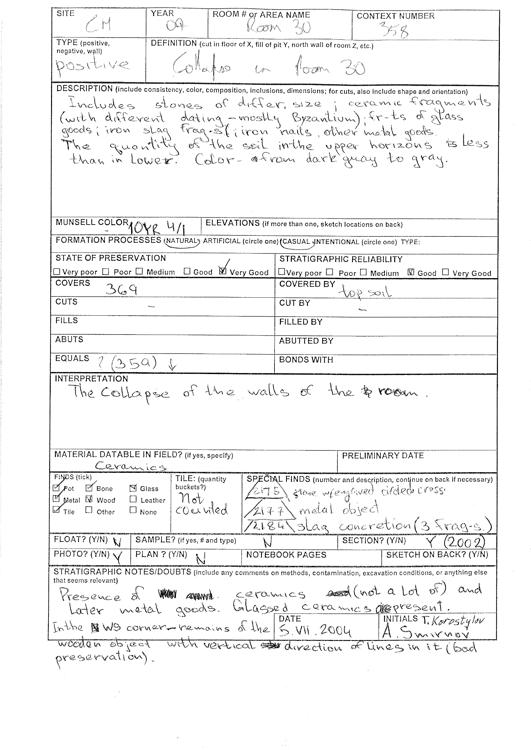 SITE YEAR ROOM # or AREA NAME CONTEXT NUMBER
CM 04 Room 30 358
TYPE (positive, negative, wall) DEFINITION (cut in floor of X, fill of pit Y, north wall of room Z, etc.)
positive Collapse in Room 30
DESCRIPTION (include consistency, color, composition, inclusions, dimensions; for cuts, also include shape and orientation)
Includes stones of differ. size; ceramic fragments
(with different dating - mostly Byzantium); fr-ts of glass
goods; iron slag frag-s; iron nails, other metal goods.
The quantity of the soil in the upper horizons is less
than in lower. Color - from dark guay to gray.
MUNSELL COLOR 10YR 4/1 ELEVATIONS (if more than one, sketch locations on back)
FORMATION PROCESSES (NATURAL) ARTIFICIAL (circle one) (CASUAL) INTENTIONAL (circle one) TYPE:
STATE OF PRESERVATION STRATIGRAPHIC RELIABILITY
Very poor Poor Medium Good Very Good Very poor Poor Medium Good Very Good
COVERS 369 COVERED BY top soil
CUTS - CUT BY -
FILLS FILLED BY
ABUTS ABUTTED BY
EQUALS ? (359) ↓ BONDS WITH
INTERPRETATION
The collapse of the walls of the room.
MATERIAL DATABLE IN FIELD? (if yes, specify) PRELIMINARY DATE
Ceramics
FINDS (tick) TILE: (quantity buckets?) SPECIAL FINDS (number and description, continue on back if necessary)
Pot Bone Glass Not 2175 stone w/engraved circled cross
Metal Wood Leather counted 2177 metal object
Tile Other None 2184 slag concretion (3 frag-s)
FLOAT? (Y/N) N SAMPLE? (if yes, # and type) N SECTION? (Y/N) Y (2002)
PHOTO? (Y/N) Y PLAN? (Y/N) N NOTEBOOK PAGES SKETCH ON BACK? (Y/N)
STRATIGRAPHIC NOTES/DOUBTS (include any comments on methods, contamination, excavation conditions, or anything else that seems relevant)
Presence of ceramics (not a lot of) and
Later metal goods. Glassed ceramics represent.
In the WS corner - remains of the DATE 5.VII.2004 INITIALS T. Korostylov A. Smirnov
wooden object with vertical direction of lines in it (bad
preservation).